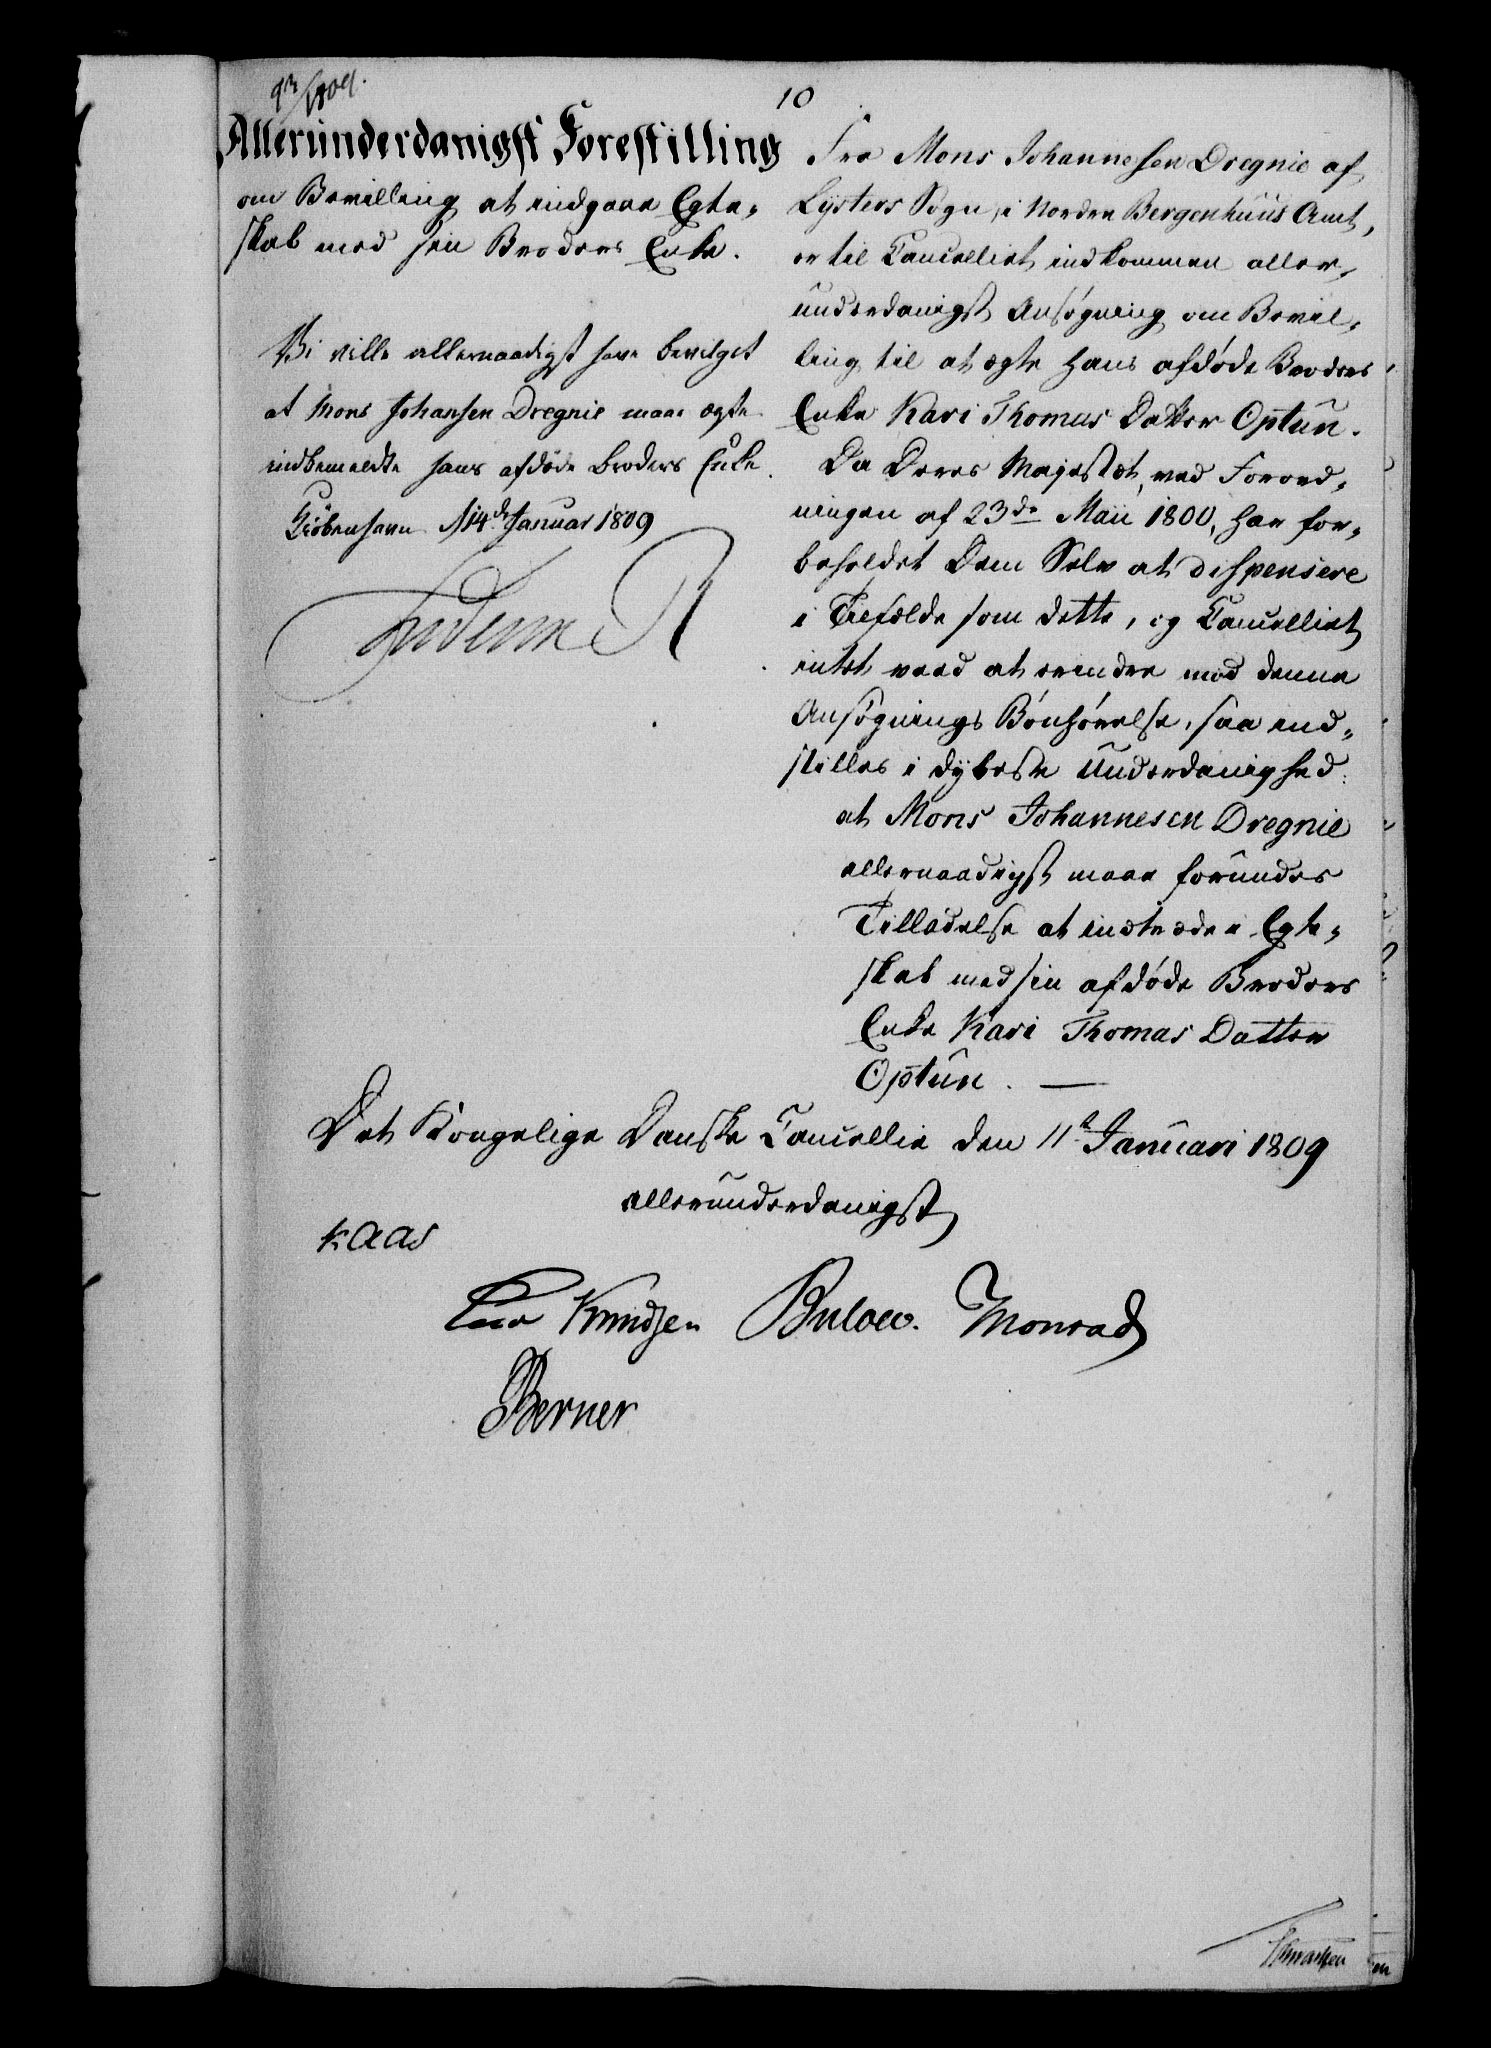 10
Allerunderdanigst Forestilling
om Bevilling at indgaae Egte-
skab med sin Broders Enke.
Vi ville allernaadigst have bevilget
at Mons Johansen Dregnie maae ægte
indbemeldte hans afdøde Broders Enke.
Kiøbenhavn d 14de Januar 1809
Frederik R
Fra Mons Johannesen Dregnie af
Lysters Sogn, i Nordre Bergenhuus Amt,
er til Cancelliet indkommen aller-
underdanigst Ansøgning om Bevil-
ling til at ægte hans afdøde Broders
Enke Kari Thomas Datter Optun.
Da Deres Majestæt, ved Forord-
ningen af 23de Maii 1800, har for-
beholdet Dem Selv at dispensere
i Tilfælde som dette, og Cancelliet
intet veed at erindre mod denne
Ansøgnings Bønhørelse, saa ind-
stilles i dybeste Underdanighed:
at Mons Johannesen Dregnie
allernaadigst maae forundes
Tilladelse at indtræde i Egte-
skab med sin afdøde Broders
Enke Kari Thomas Datter
Optun. —
Det Kongelige Danske Cancellie den 11te Januari 1809
allerunderdanigst
Kaas
Knudsen Bulow. Monrad
Berner